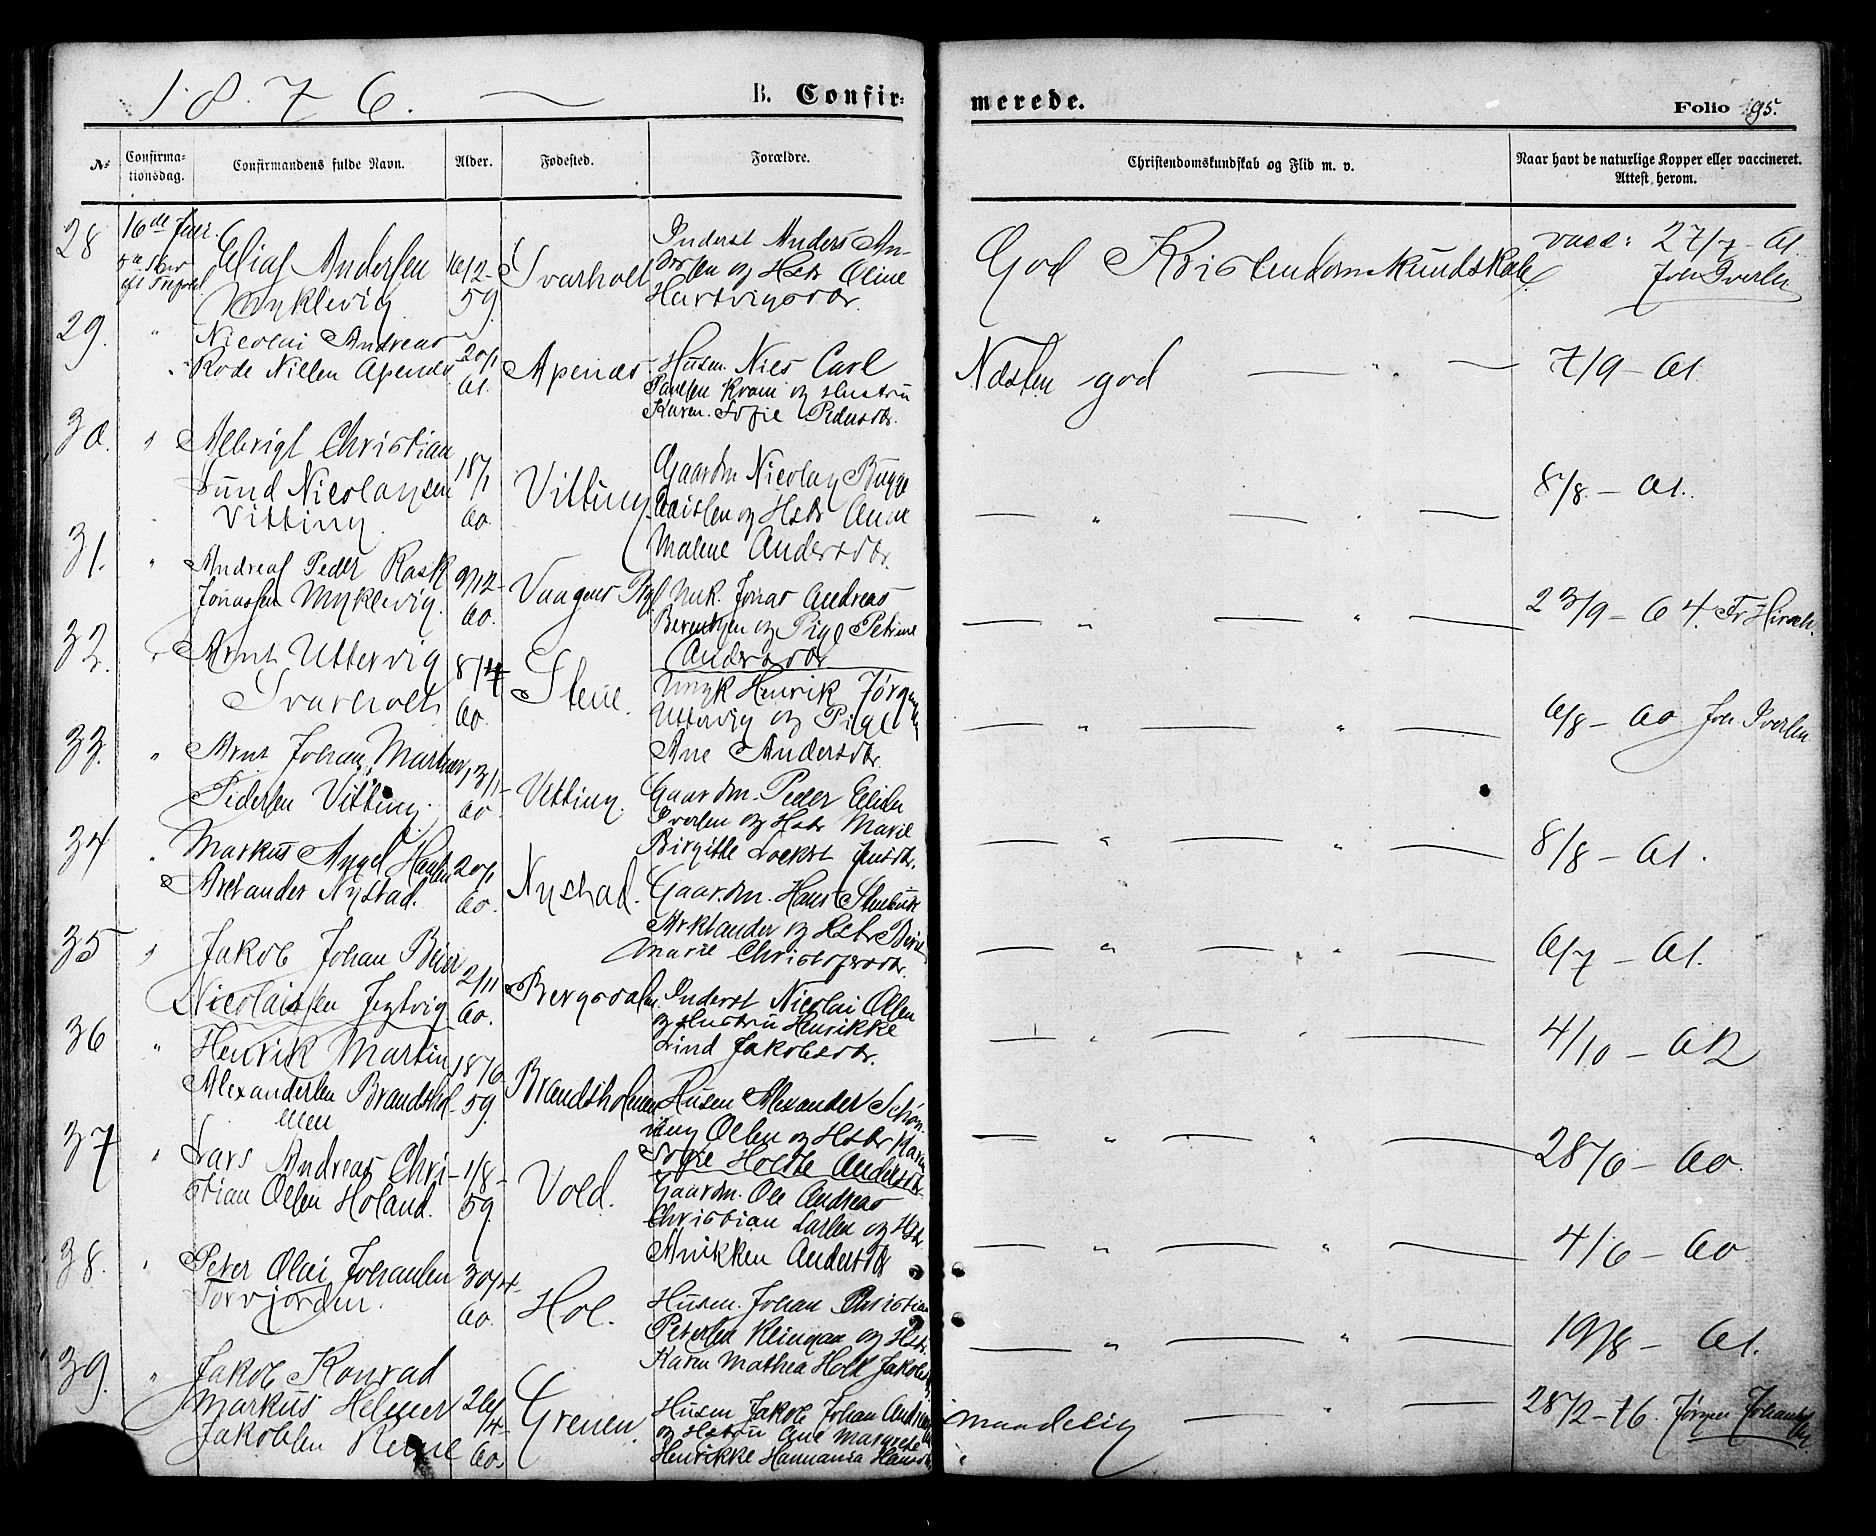 1876.
B. Confir-
merede.
Folio 95.
No
Confirma-
tionsdag.
Confirmandens fulde Navn.
Alder.
Fødested.
Forældre.
Christendomskundskab og Flid m. v.
Naar havt de naturlige Kopper eller vaccineret.
Attest herom.
28
16de Juli.
Elias Andersen
Myklevig
16/2-
59.
Svarholt
Inderst Anders An-
dersen og Hstr Oline
Hartvigsdtr.
God Kristendomskundskab
vacc: 27/7 - 61
Joh Iversen
29.
"
Nicolai Andreas
Rode Nilsen Apenæs
20/1
61.
Apenæs.
Husm. Niels Carl
Paulsen Kram og Hustru
Karen Sofie Pedersdtr.
Næsten god — " —
7/9 - 61
30.
"
Albrigt Christian
Lund Nicolaysen
Vitting
18/1
60.
Vitting
Gaardm Nicolay Bugge
og Hstr Anne
Malene Andersdtr.
— " — " —
8/8. - 61.
31.
"
Andreas Peder Rask
Jonassen Myklevig.
9/12-
60.
Vaagens Pgl
Unk. Jonas Andreas
Berentsen og Pige Petrine
Andersdtr
— " — " —
23/9 - 64. Fr Hirsch.
32.
"
Arnt Uttervig
Svarholt
8/4
60.
Stene.
Ungk Henrik Jørgensen
Uttervig og Pige
Ane Andersdtr.
— " — " —
6/8 - 60 Joh. Iversen
33.
"
Arnt Johan Martner
Pedersen Vitting.
13/1-
60.
Vitting.
Gaardm. Peder Elias
Iversen og Hstr Marie
Birgitte Lockst Jensdtr.
— " — " —
8/8 - 61.
34
"
Markus Angel Hansen
Arctander Nystad.
20/1
60.
Nystad.
Gaardm. Hans Stenbuk
Arktander og Hstr Berit
Marie Christofersdtr.
— " — " —
6/7 - 61.
35
"
Jakob Johan Beier
Nicolaissen Jegtvig
2/11
60.
Bergsdalen.
Inderst Nicolai Olsen
og Hustru Henrikke
Lind Jakobsdtr.
— " — " —
4/10 - 62
36
"
Henrik Martin
Alexandersen Brandshol-
men
18/6
59.
Brandsholmen
Husm Alexander Schøn-
ning Olsen og Hstr Karen
Sofie Holdte Andersdtr.
— " — " —
28/6 - 60.
37
"
Lars Andreas Chri-
stian Olsen Holand.
1/8-
59.
Vold.
Gaardm. Ole Andreas
Christian Larsen og Hstr
Anikken Andersdtr
— " — " —
4/6 - 60
38.
"
Peter Olai Johansen
Torvjorden.
30/4-
60.
Hol.
Husm. Johan Christian
Petersen Klingan og Hstr.
Karen Mathea Hold Jakobsdtr
— " — " —
19/8 - 61.
39.
"
Jakob Konrad
Markus Helmer
Jakobsen Reine
26/
4-
60.
Grenen.
Husm Jakob Johan Andreassen
og Hstru Ane Margrete
Henrikke Hannania Hansdtr
maadelig — " —
28/2 - 76. Jørgen Johannes